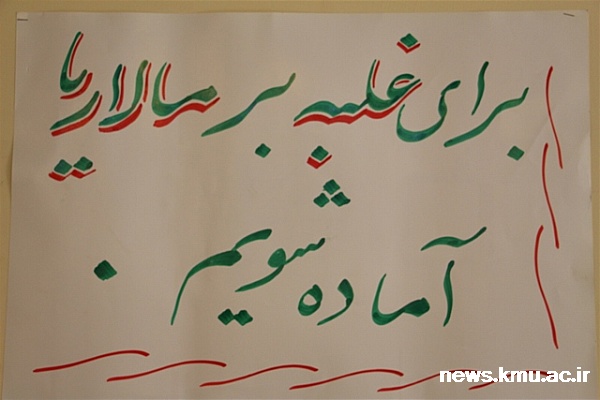 برای غلبه بر مالاریا
آماده شویم.
news.kmu.ac.ir